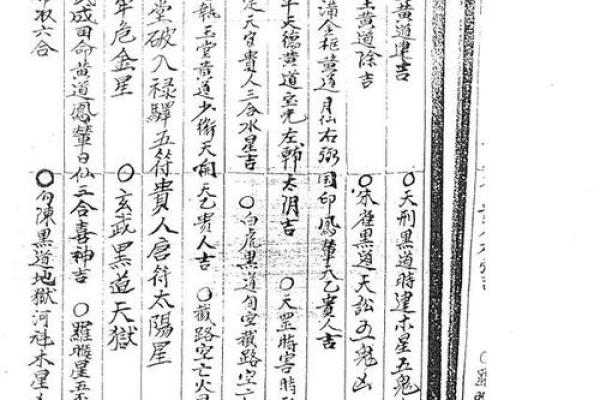 黃道建吉 〇天刑黑道時建木星五鬼
黃道除吉 〇朱雀黑道天訟五鬼凶
滿金匱黃道月仙右弼国印鳳輦天乙貴人吉
平天德黃道宝光左輔太阴吉 〇天罡時害時
定天官貴人三合水星吉 〇白虎黑道旬空截路空亡
執玉堂黃道少微天開天乙貴人吉 〇截路空亡火星
堂破入禄驛五符貴人唐符太陽星
牢危金星 〇玄武黑道天獄
成司命黃道鳳輦日仙三合喜神吉 〇羅睺星五不
收六合 〇勾陳黑道地獄河魁木星